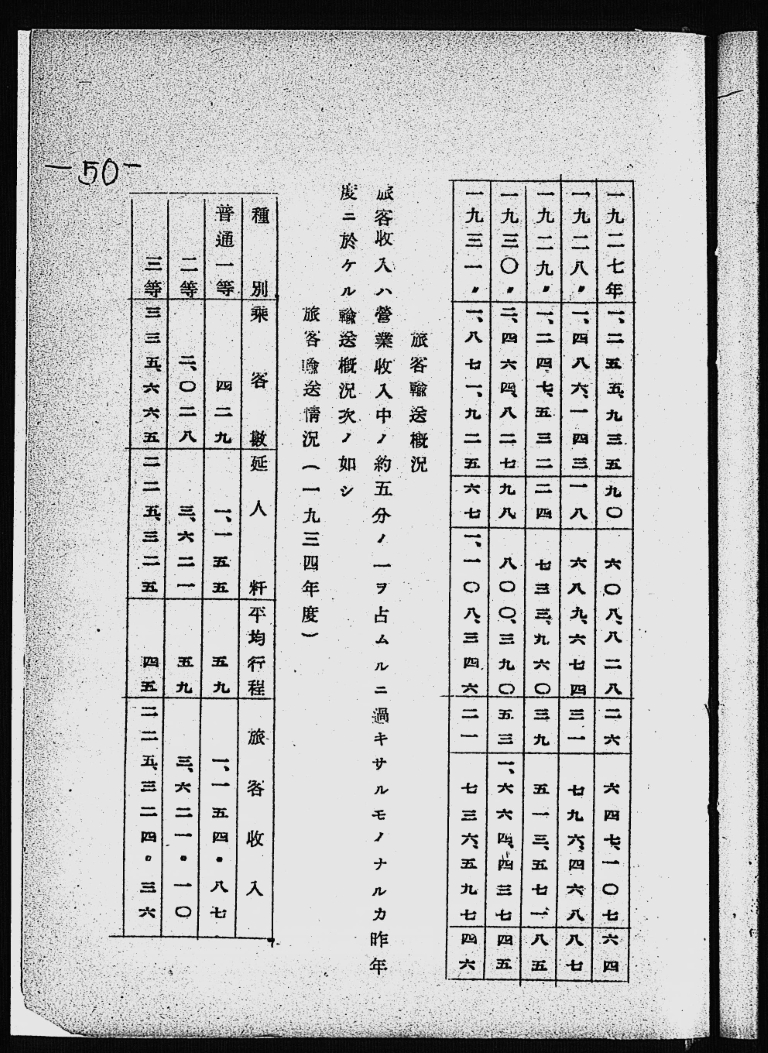 一九二七年 一、二五五、九三五 九〇 六〇八、八二八 二六 六四七、一〇七 六四
一九二八〃 一、四八六、一四三 一八 六八九、六七四 三一 七九六、四六八 八七
一九二九〃 一、二四七、五三二 二四 七三三、九六〇 三九 五一三、五七一 八五
一九三〇〃 二、四六四、八二七 九八 八〇〇、三九〇 五三 一、六六四、四三七 四五
一九三一〃 一、八七一、九二五 六七 一、一〇八、三四六 二一 七三六、五九七 四六
旅客輸送概況
旅客收入ハ營業收入中ノ約五分ノ一ヲ占ムルニ過キサルモノナルカ昨年
度ニ於ケル輸送概況次ノ如シ
旅客輸送情況(一九三四年度)
種別 乘客數 延人粁 平均行程 旅客收入
普通一等 四二九 一、一五五 五九 一、一五四・八七
二等 二、〇二八 三、六二一 五九 三、六二一・一〇
三等 三三五、六六五 二二五、三二五 四五 二二五、三二四・三六
—50—